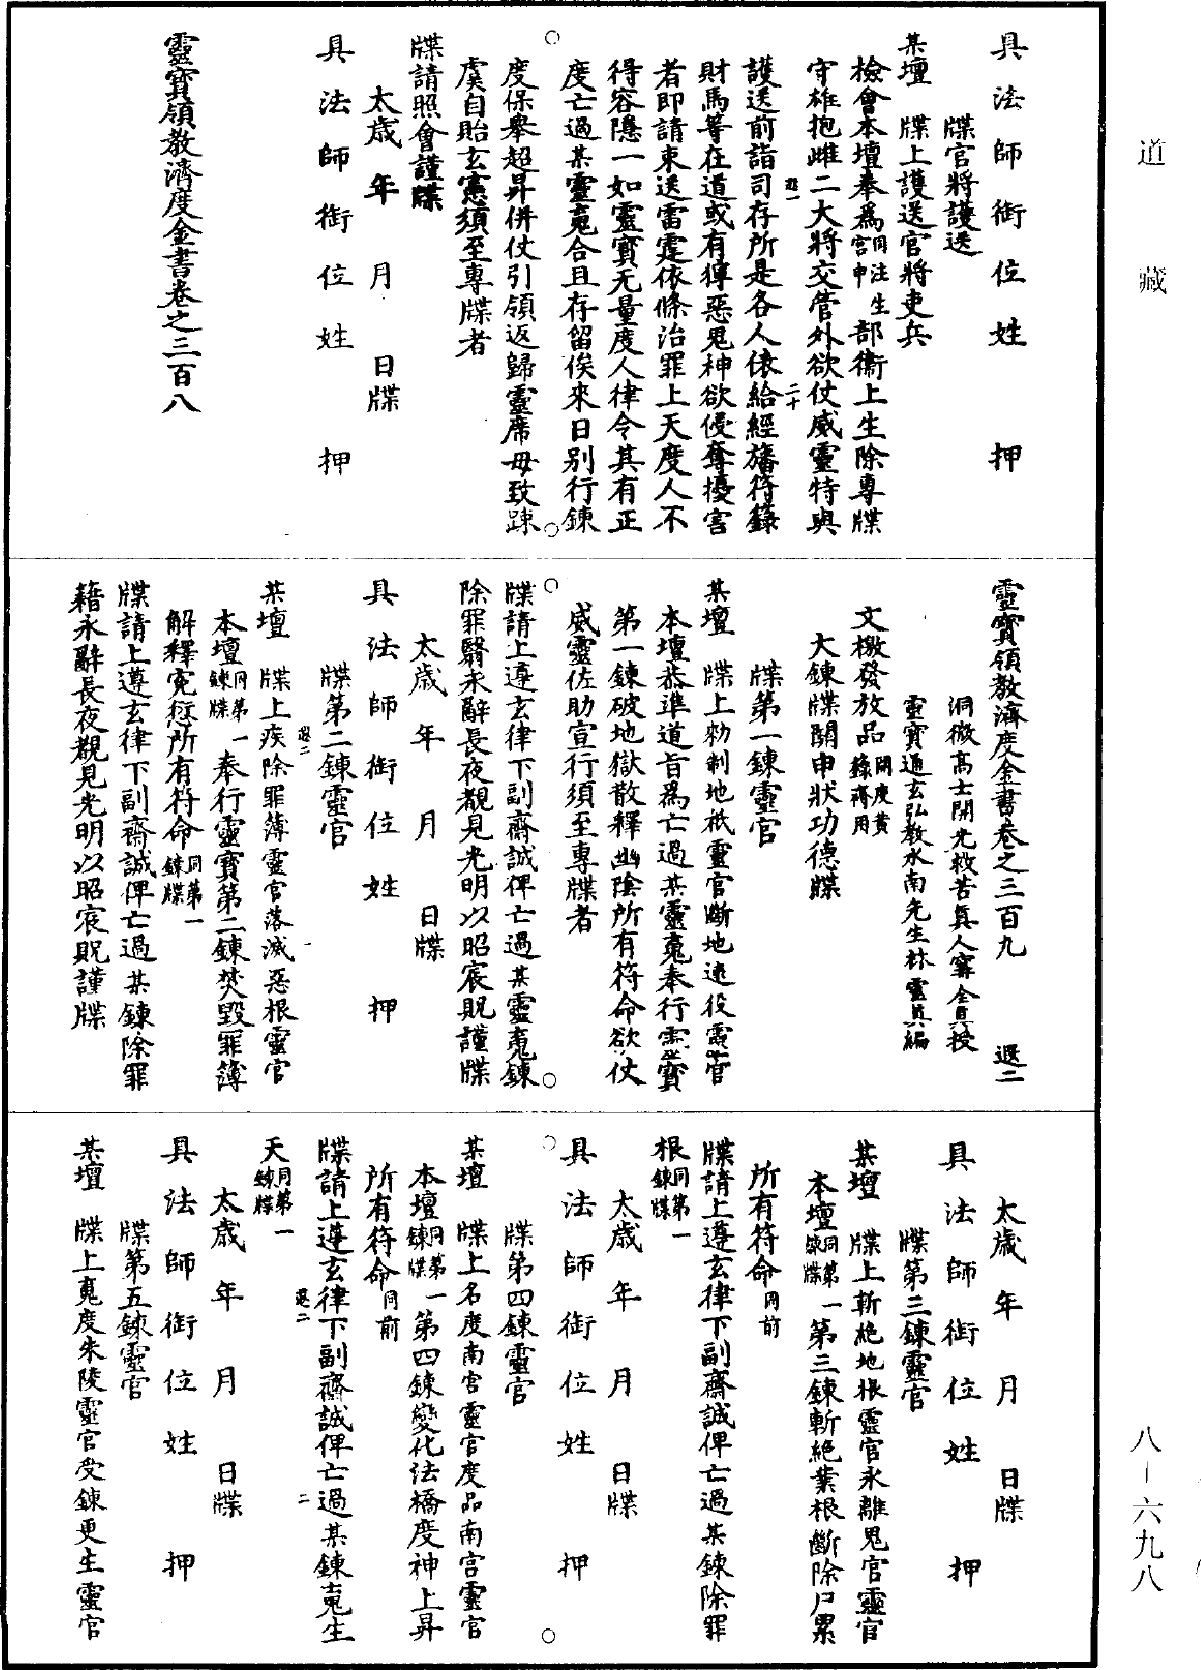 道藏
八-六九八
具法師銜位姓　押
牒官將護送
某壇　牒上護送官將吏兵
檢會本壇奉爲同注生宮申部衞上生除專牒
守雄抱雌二大將交管外欲仗威靈特與
護送前詣司存所是各人依給經旛符籙
財馬等在道或有獰惡鬼神欲侵奪擾害
者即請束送雷霆依條治罪上天度人不
得容隱一如靈寶无量度人律令其有正
度亡過某靈䰟合且存留俟來日別行鍊
度保舉超昇併仗引領返歸靈席毋致踈
虞自貽玄憲須至專牒者
牒請照會謹牒
太歲　年　月　日牒
具法師銜位姓　押
靈寶領教濟度金書卷之三百八
靈寶領教濟度金書卷之三百九　退二
洞微高士開光救苦眞人甯全眞授
靈寶通玄弘教水南先生林靈眞編
文檄發放品開度黃籙齋用
大鍊牒關申狀功德牒
牒第一鍊靈官
某壇　牒上勑制地祇靈官斷地逮役靈官
本壇恭準道旨爲亡過某靈䰟奉行靈寶
第一鍊破地獄散釋幽陰所有符命欲仗
威靈佐助宣行須至專牒者
牒請上遵玄律下副齋誠俾亡過某靈䰟鍊
除罪翳永辭長夜覩見光明以昭宸貺謹牒
太歲　年　月　日牒
具法師銜位姓　押
牒第二鍊靈官
某壇　牒上疾除罪簿靈官落滅惡根靈官
本壇同第一鍊牒奉行靈寶第二鍊焚毀罪簿
解釋寃愆所有符命同第一鍊牒
牒請上遵玄律下副齋誠俾亡過某鍊除罪
籍永辭長夜覩見光明以昭宸貺謹牒
太歲　年　月　日牒
具法師銜位姓　押
牒第三鍊靈官
某壇　牒上斬絕地根靈官永離鬼官靈官
本壇同第一鍊牒第三鍊斬絕業根斷除尸累
所有符命同前
牒請上遵玄律下副齋誠俾亡過某鍊除罪
根同第一鍊牒
太歲　年　月　日牒
具法師銜位姓　押
牒第四鍊靈官
某壇　牒上名度南宮靈官度品南宮靈官
本壇同第一鍊牒第四鍊變化法橋度神上昇
所有符命同前
牒請上遵玄律下副齋誠俾亡過某鍊䰟生
天同第一鍊牒
太歲　年　月　日牒
具法師銜位姓　押
牒第五鍊靈官
某壇　牒上䰟度朱陵靈官受鍊更生靈官